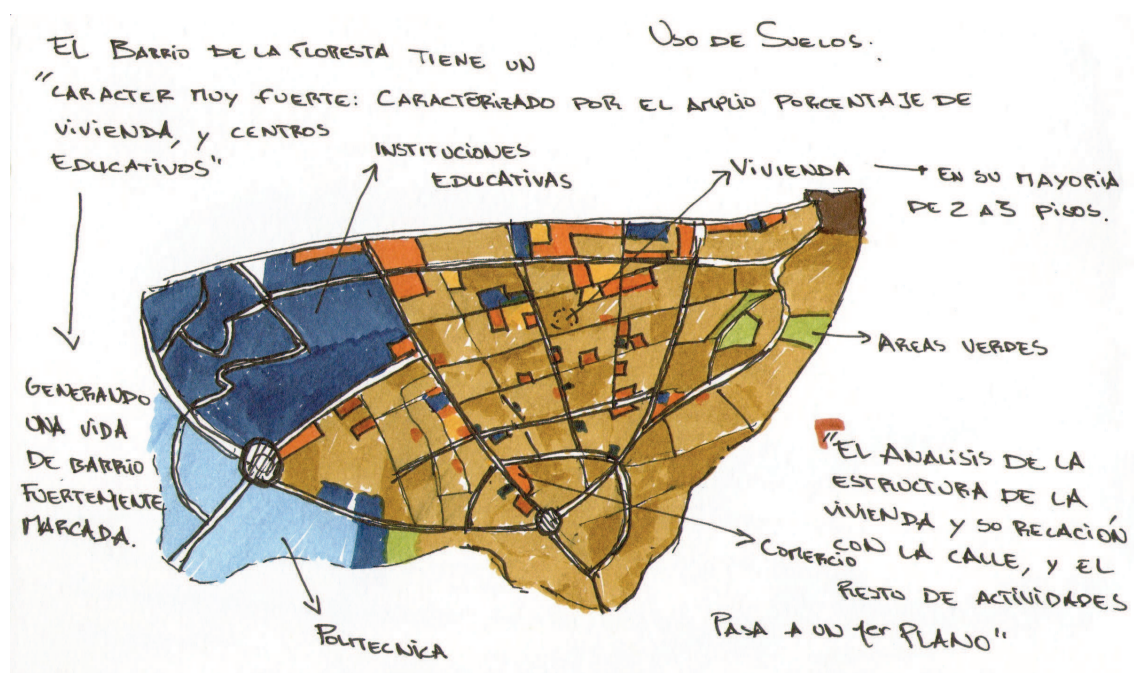 USO DE SUELOS.
EL BARRIO DE LA FLORESTA TIENE UN
"CARACTER MUY FUERTE: CARACTERIZADO POR EL AMPLIO PORCENTAJE DE
VIVIENDA, Y CENTROS
EDUCATIVOS"
INSTITUCIONES
EDUCATIVAS
VIVIENDA
EN SU MAYORIA
DE 2 A 3 PISOS.
AREAS VERDES
GENERANDO
UNA VIDA
DE BARRIO
FUERTEMENTE
MARCADA.
"EL ANALISIS DE LA
ESTRUCTURA DE LA
VIVIENDA Y SO RELACIÓN
CON LA CALLE, Y EL
RESTO DE ACTIVIDADES
PASA A UN 1er PLANO"
COMERCIO
POLITECNICA